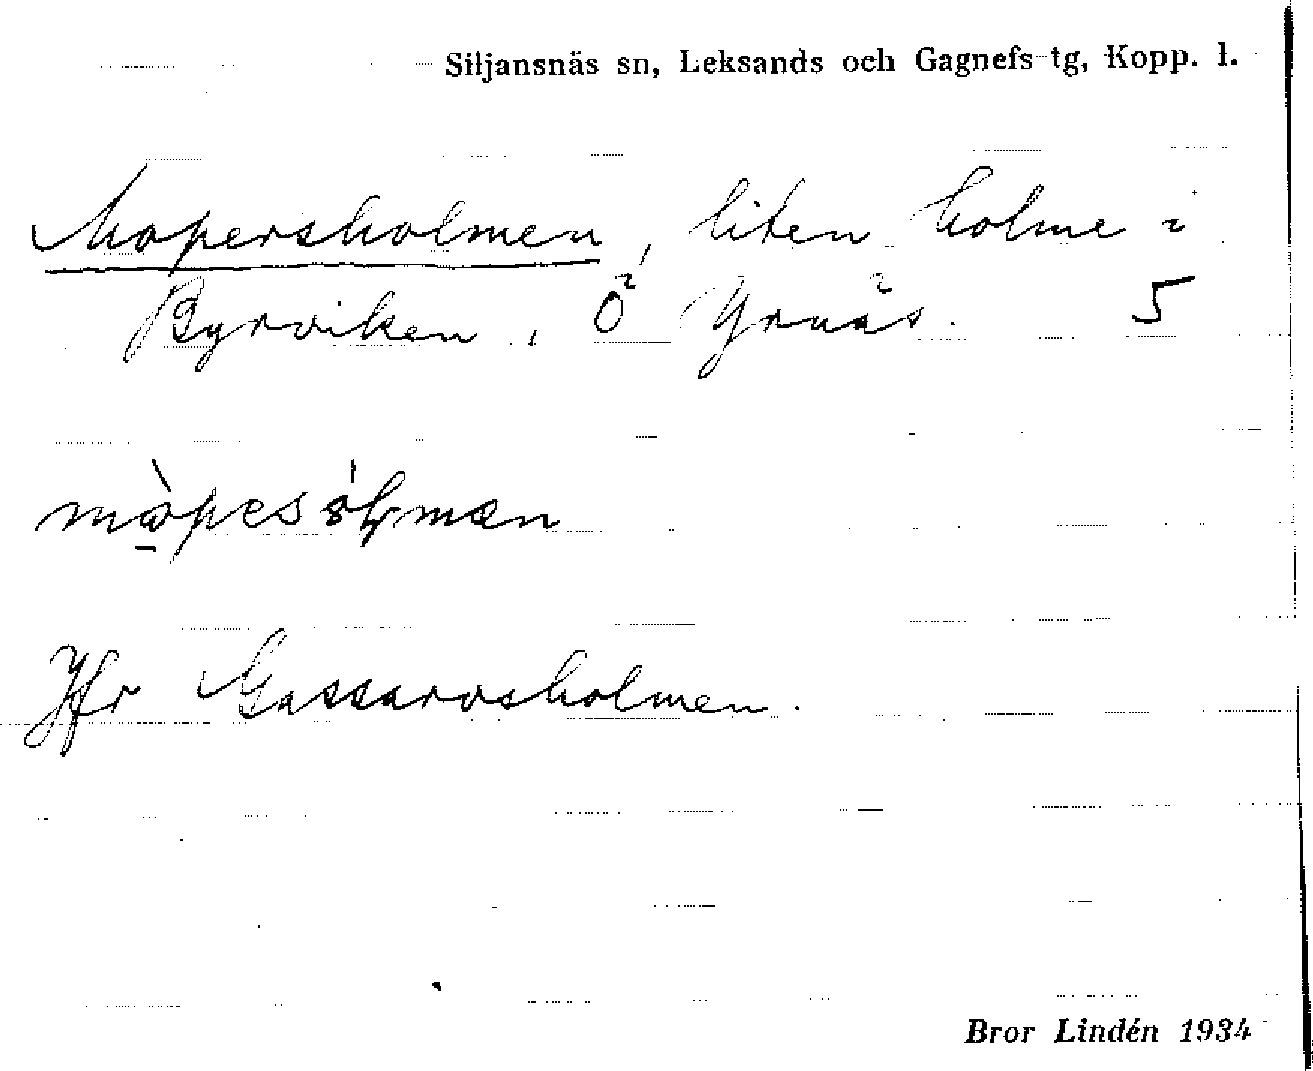 Siljansnäs sn, Leksands och Gagnefs tg, Kopp. l.
Mopersholmen, liten holme i
Byrviken, Ö Yrnäs. 5
Jfr Gassarvsholmen.
Bror Lindén 1934